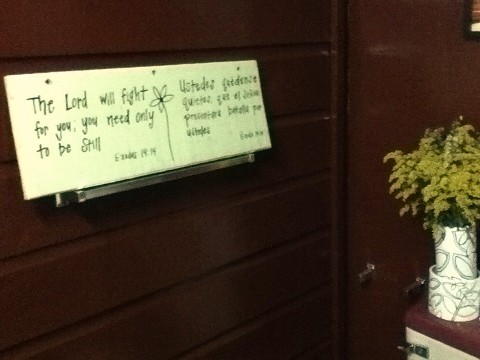 The Lord will fight
for you; you need only
to be still
Exodus 14:14
Ustedes quédense
quietos, que el Señor
presentará batalla por
ustedes
Exodo 14:14